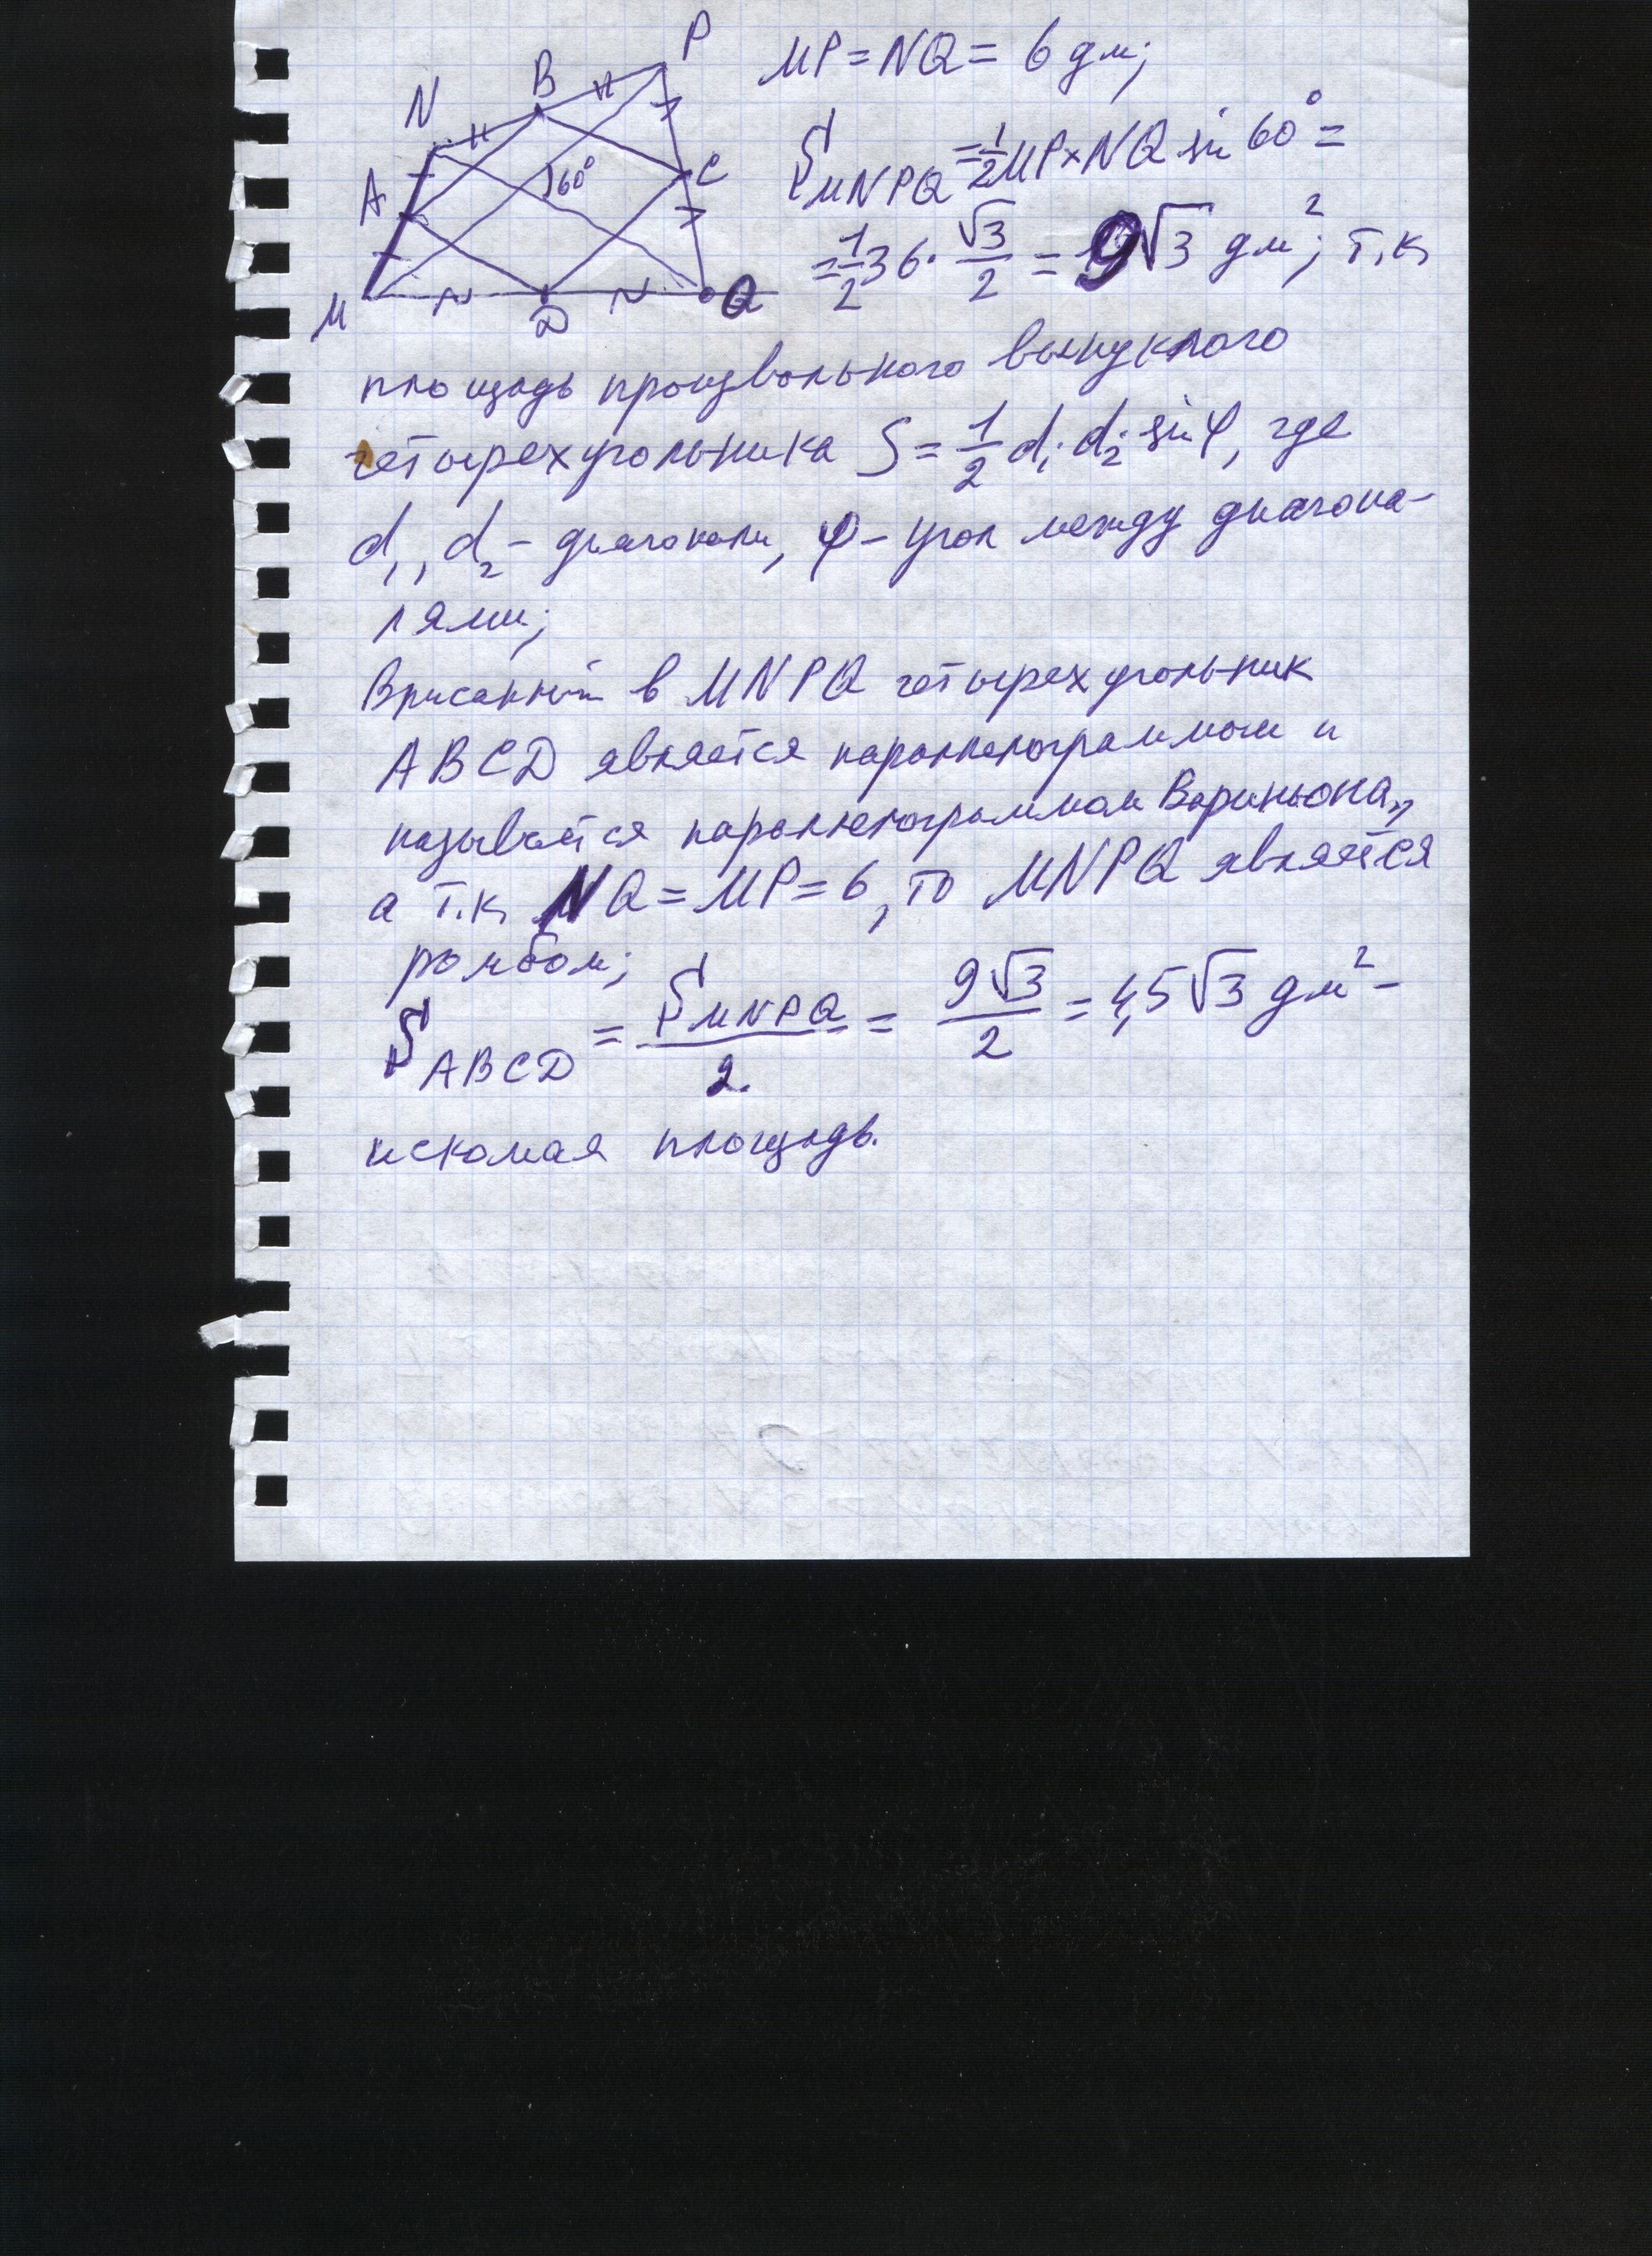 P
B
N
A
60°
C
M
D
Q
MP = NQ = 6 дм;
S MNPQ = 1/2 MP × NQ sin 60° =
= 1/2 36 · √3/2 = 9√3 дм²; т.к.
площадь произвольного выпуклого
четырехугольника S = 1/2 d₁ · d₂ · sin φ, где
d₁, d₂ – диагонали, φ – угол между диагона-
лями;
Вписанный в MNPQ четырехугольник
ABCD является параллелограммом и
называется параллелограммом Вариньона,
а т.к. NQ = MP = 6, то MNPQ является
ромбом;
S ABCD = S MNPQ / 2 = 9√3 / 2 = 4,5√3 дм² –
искомая площадь.